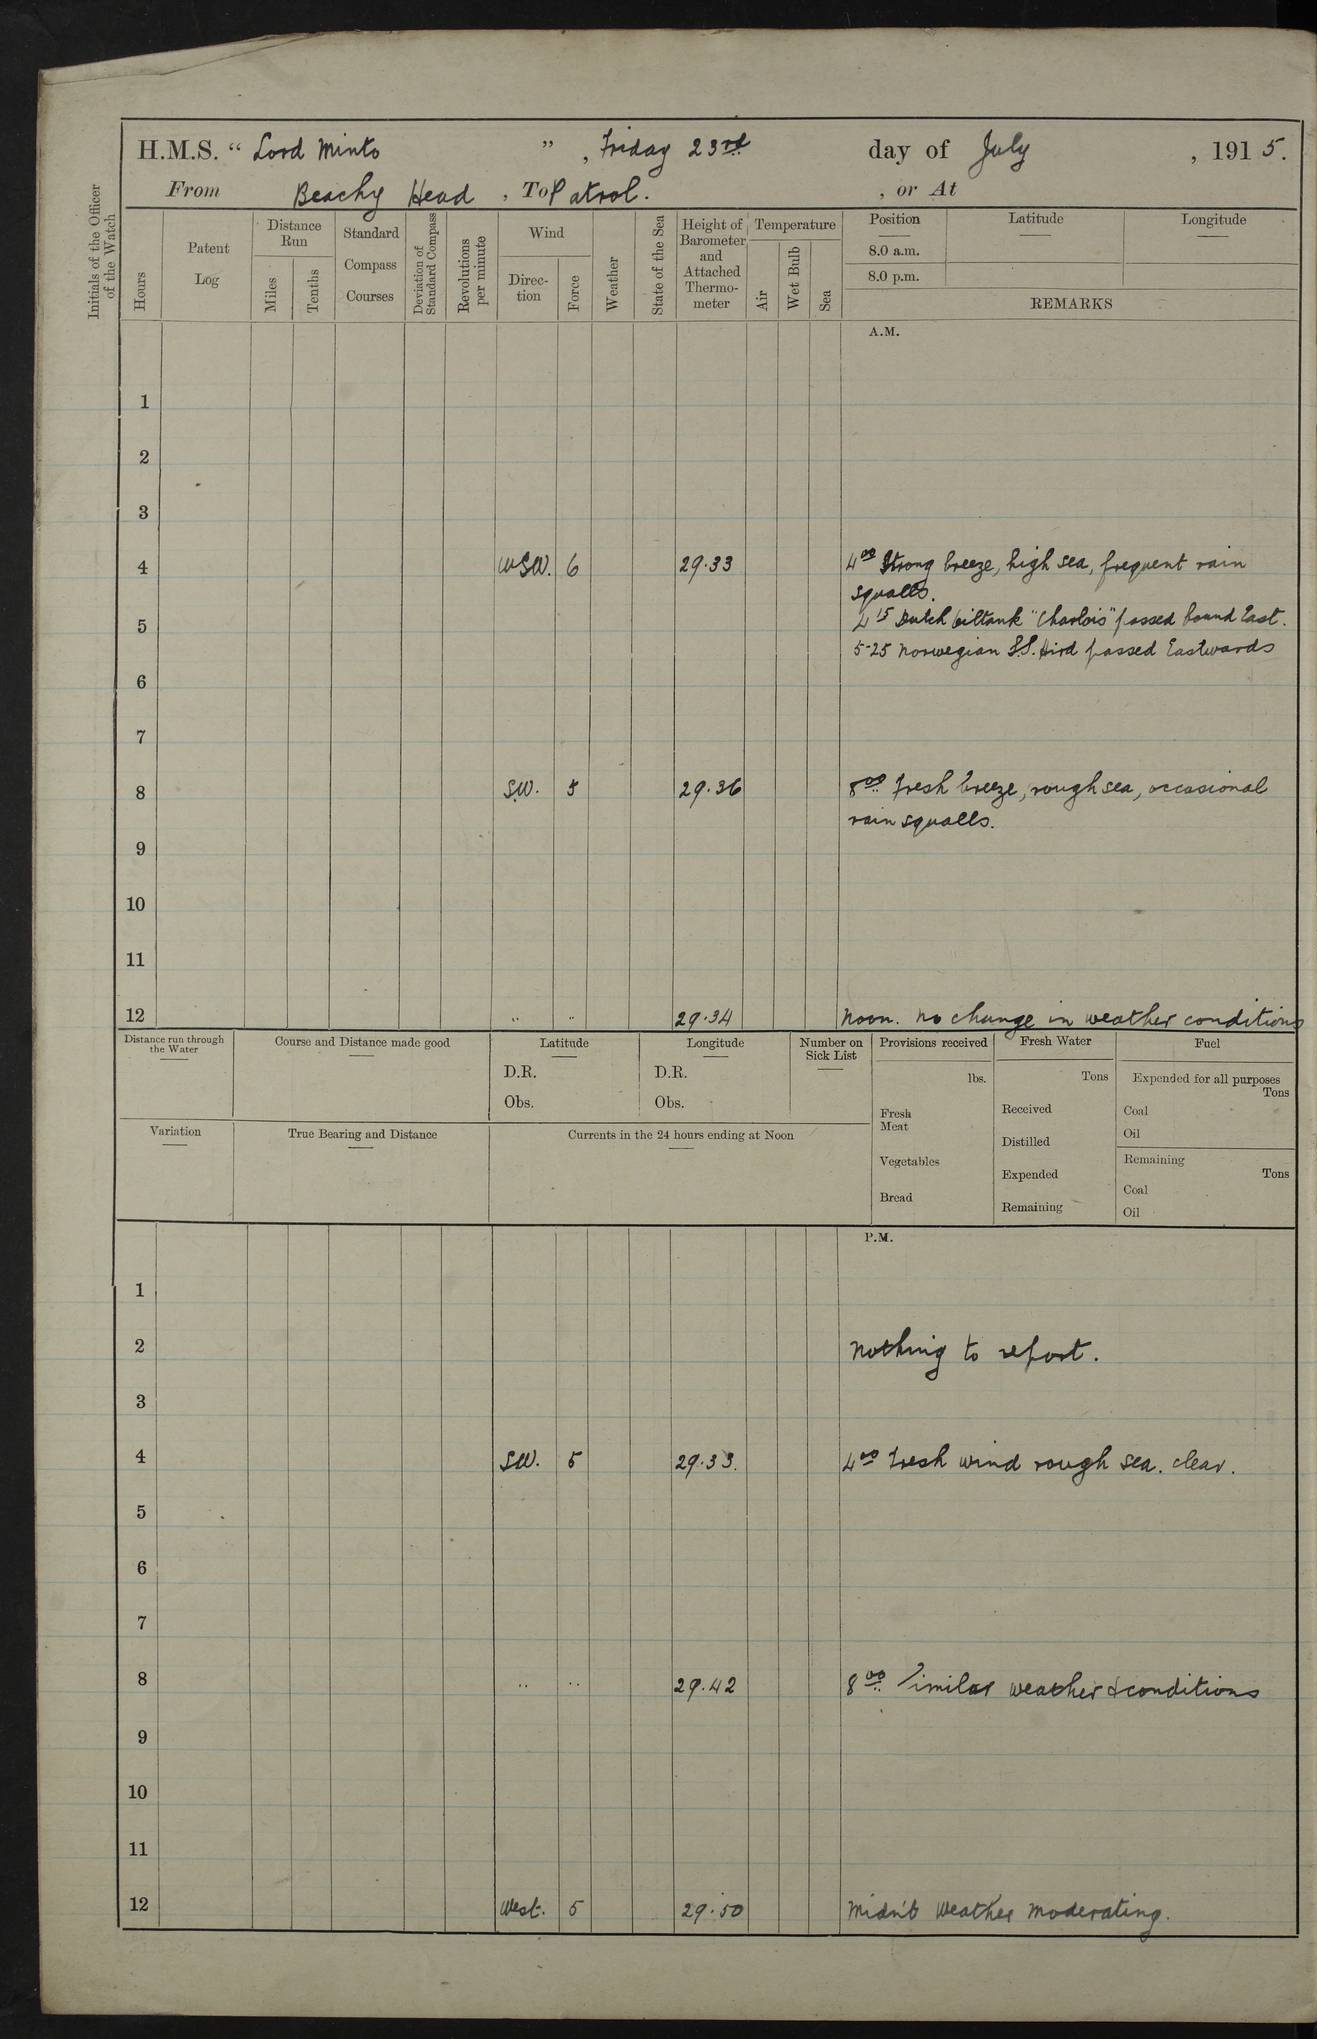 H.M.S. “ Lord Minto ” , Friday 23rd day of July , 1915.
From Beachy Head , To Patrol. , or At
Initials of the Officer of the Watch
Hours
Patent Log
Distance Run
Miles
Tenths
Standard Compass Courses
Deviation of Standard Compass
Revolutions per minute
Wind
Direc-tion
Force
Weather
State of the Sea
Height of Barometer and Attached Thermo-meter
Temperature
Air
Wet Bulb
Sea
Position Latitude Longitude
8.0 a.m.
8.0 p.m.
REMARKS
A.M.
1
2
3
4 WSW. 6 29.33 4 00 Strong breeze, high sea, frequent rain
squalls.
4 15 Dutch oiltank "Charlois" passed bound East.
5
5-25 Norwegian S.S. Hird passed Eastwards
6
7
8 S.W. 5 29.36 8 00 Fresh breeze, rough sea, occasional
rain squalls.
9
10
11
12 " " 29.34 Noon. No change in weather conditions
Distance run through the Water
Course and Distance made good
Latitude
D.R.
Obs.
Longitude
D.R.
Obs.
Number on Sick List
Provisions received
lbs.
Fresh Meat
Vegetables
Bread
Fresh Water
Tons
Received
Distilled
Expended
Remaining
Fuel
Expended for all purposes
Tons
Coal
Oil
Remaining
Tons
Coal
Oil
Variation
True Bearing and Distance
Currents in the 24 hours ending at Noon
P.M.
1
2 Nothing to report.
3
4 SW. 5 29.33. 4 00 Fresh wind rough sea. clear.
5
6
7
8 " " 29.42 8 00 Similar weather & conditions
9
10
11
12 West. 5 29.50 Midn't Weather moderating.